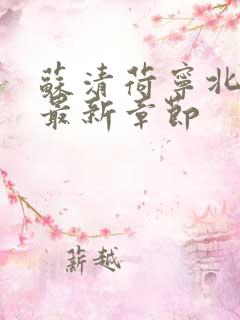 蘇清荷寧北
最新章節
薪越